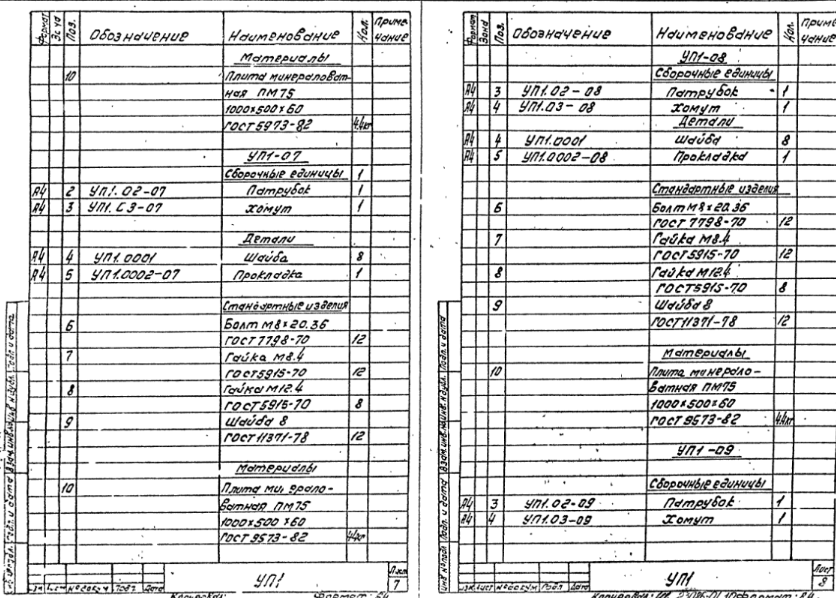 Формат Зона Поз. Обозначение Наименование Кол. Приме чание
Материалы
10 Плита минераловат-
ная ПМ75
1000×500×60
ГОСТ 5973-82 44кг
УП1-07
Сборочные единицы 1
А4 2 УП1.02-07 Патрубок 1
А4 3 УП1.С3-07 Хомут 1
Детали
А4 4 УП1.0001 Шайба 8
А4 5 УП1.0002-07 Прокладка 1
Стандартные изделия
6 Болт М8×20.36
ГОСТ 7798-70 12
7 Гайка М8.4
ГОСТ5915-70 12
8 Гайка М12.4
ГОСТ5915-70 8
9 Шайба 8
ГОСТ11371-78 12
Материалы
10 Плита минерало-
ватная ПМ75
1000×500×60
ГОСТ 9573-82 44кг
УП1
Лист
7
Формат Зона Поз. Обозначение Наименование Кол. Приме чание
УП1-08
Сборочные единицы
А4 3 УП1.02-08 Патрубок 1
А4 4 УП1.03-08 Хомут 1
Детали
А4 4 УП1.0001 Шайба 8
А4 5 УП1.0002-08 Прокладка 1
Стандартные изделия
6 Болт М8×20.36
ГОСТ 7798-70 12
7 Гайка М8.4
ГОСТ5915-70 12
8 Гайка М12.4
ГОСТ5915-70 8
9 Шайба 8
ГОСТ11371-78 12
Материалы
10 Плита минерало-
ватная ПМ75
1000×500×60
ГОСТ 9573-82 44кг
УП1-09
Сборочные единицы
А4 3 УП1.02-09 Патрубок 1
А4 4 УП1.03-09 Хомут 1
УП1
Лист
8